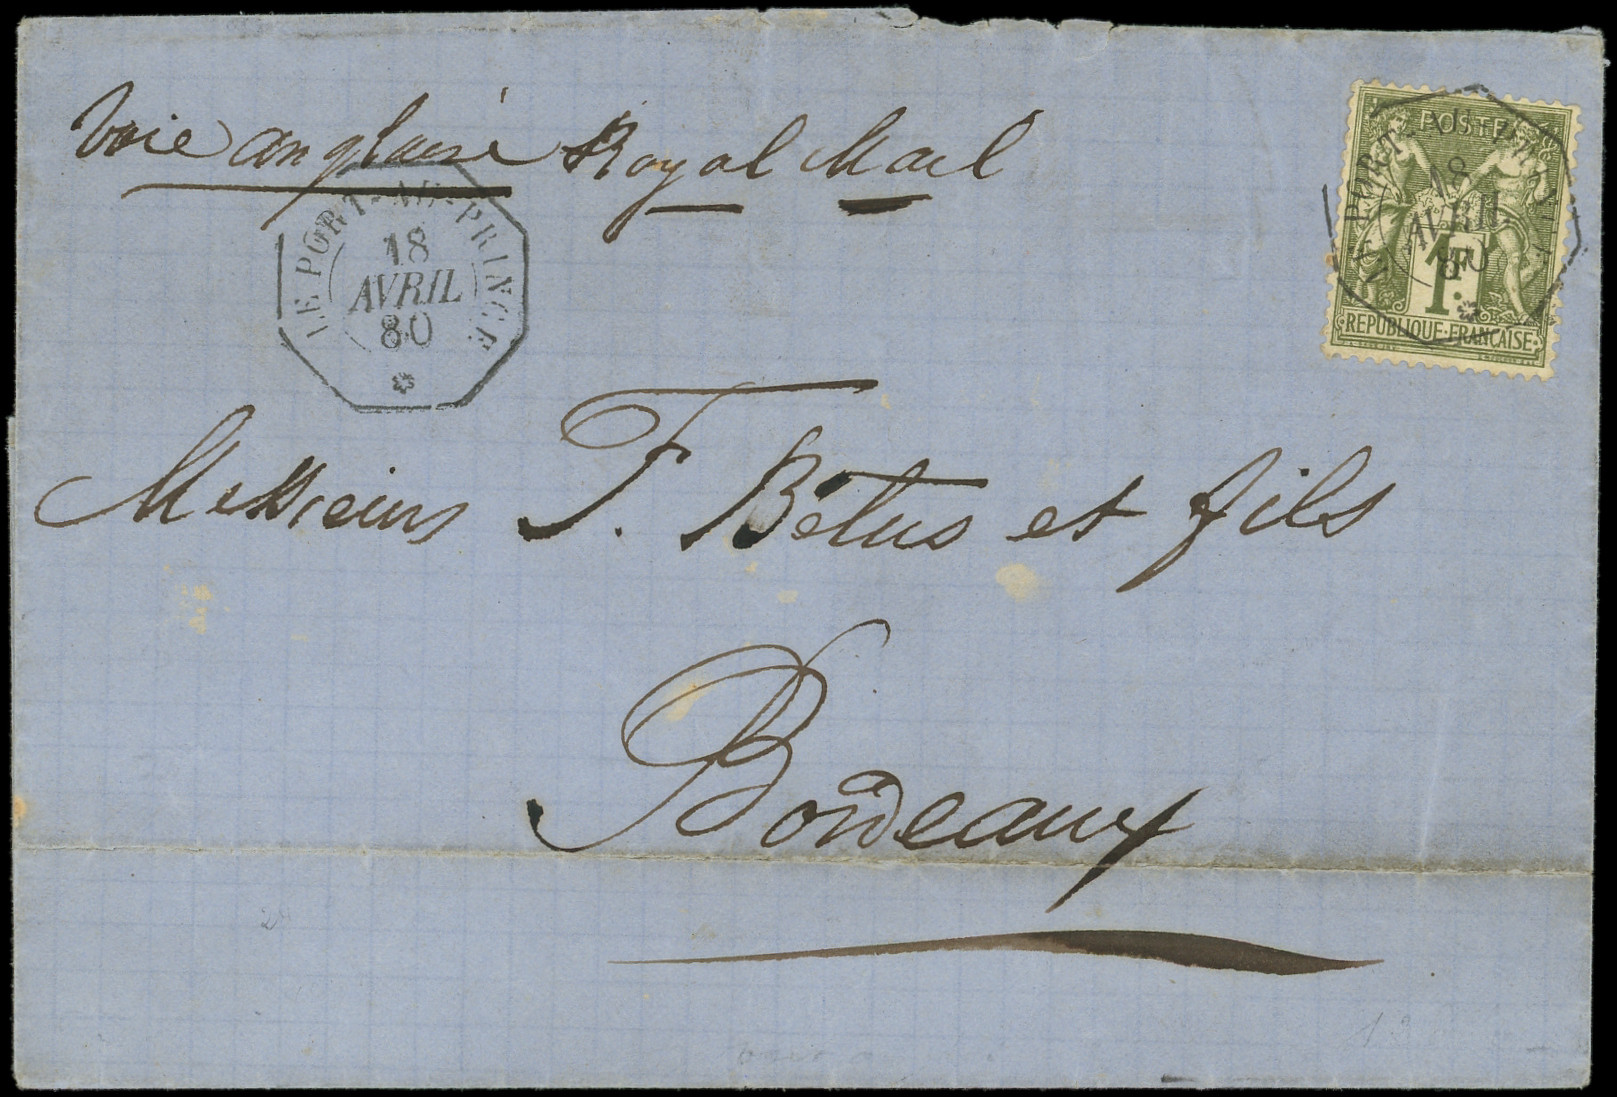 Voie anglaise Royal Mail
LE PORT-AU-PRINCE
18
AVRIL
80
POSTES
18
AVRIL
80
1F
REPUBLIQUE-FRANÇAISE
Messieurs F. Bétus et fils
Bordeaux